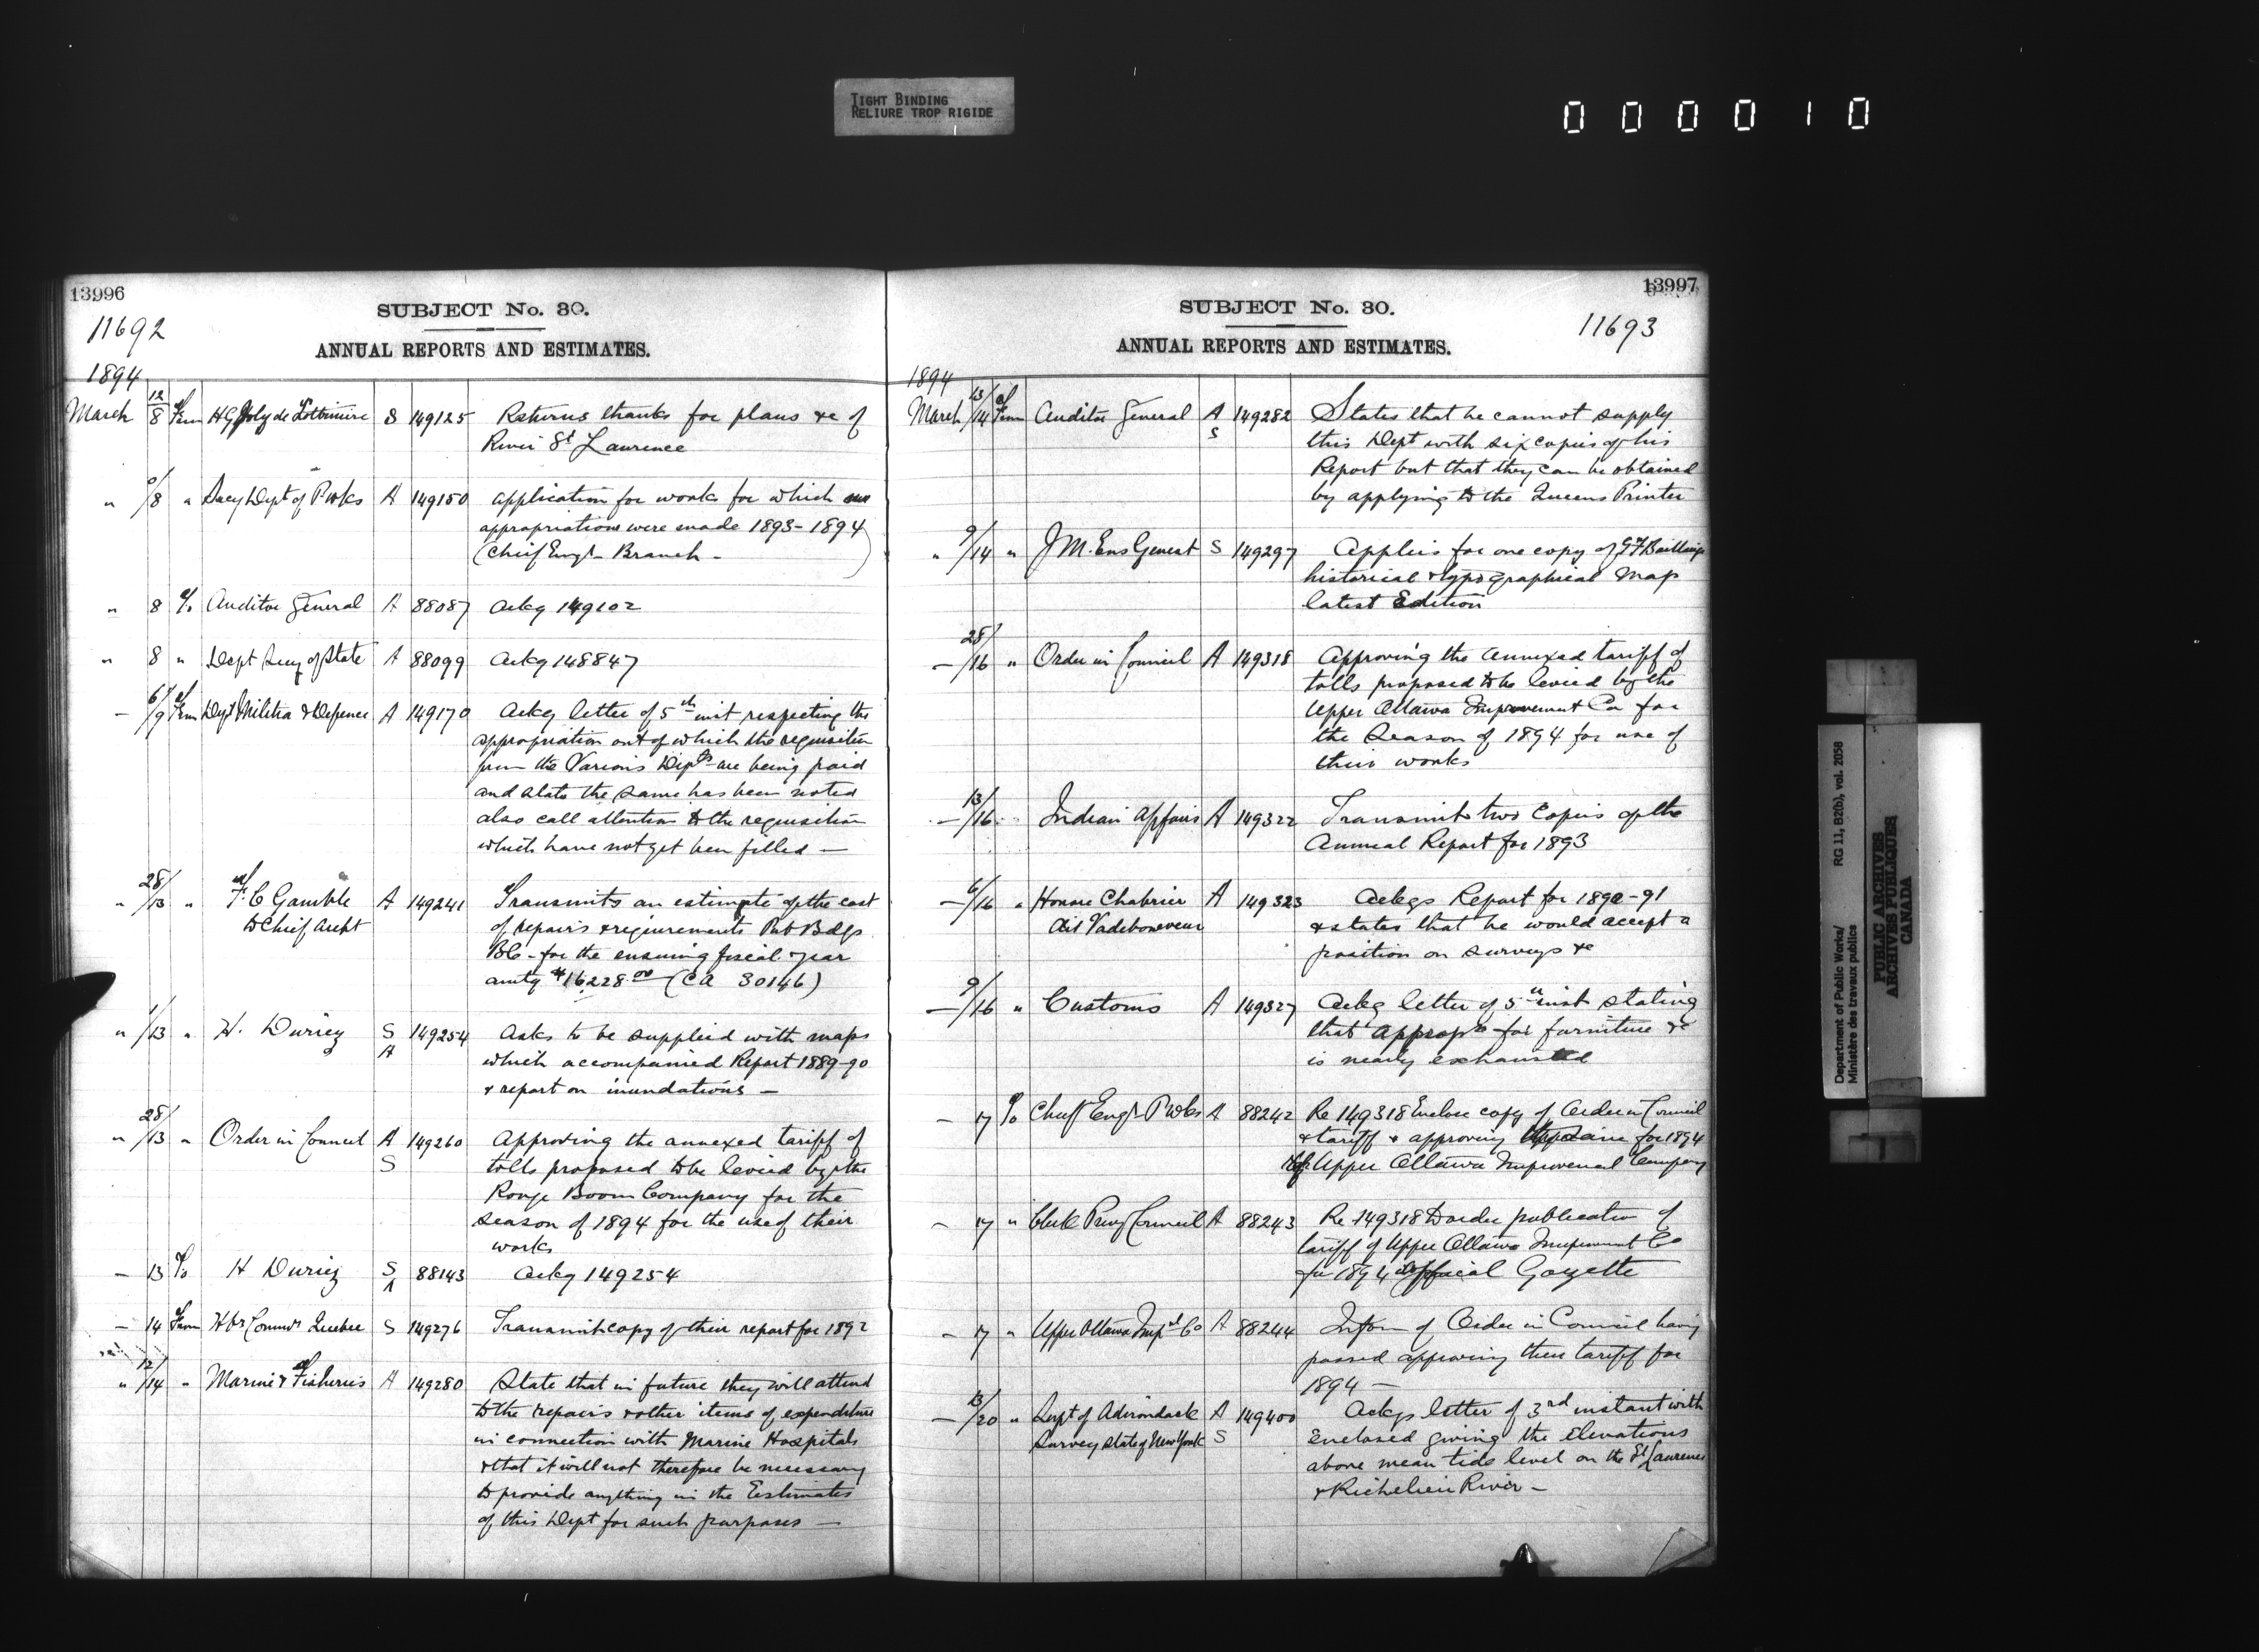 TIGHT BINDING
RELIURE TROP RIGIDE
000010
13996
SUBJECT No. 30.
11692
ANNUAL REPORTS AND ESTIMATES.
1894
March 12/8 From H G Joly de Lotbiniere S 149125 Returns thanks for plans &c of
River St Lawrence
" /8 " Secy Dept of P Wks A 149150 application for works for which
appropriations were made 1893-1894
(Chief Engr Branch -
" 8 To Auditor General A 88087 Ackg 149102
" 8 " Dept Secy of State A 88099 Ackg 148847
— 6/9 From Dept Militia & Defence A 149170 Ackg letter of 5th inst respecting the
appropriation out of which the requisition
from the Various Depts are being paid
and state the same has been noted
also call attention to the requisition
which have not yet been filled —
" 28/13 " F. C Gamble A 149241 Transmits an estimate of the cost
to Chief Archt of repairs & requirements Pub Bdgs
BC - for the ensuing fiscal year
amtg $16228.00 (CA 30146)
" 1/13 " H. Duriez S A 149254 Asks to be supplied with maps
which accompanied Report 1889-90
& report on inundations —
" 28/13 " Order in Council A S 149260 Approving the annexed tariff of
tolls proposed to be levied by the
Rouge Boom Company for the
season of 1894 for the use of their
works
— 13 To H Duriez S A 88143 Ackg 149254
— 14 From Hbr Commrs Quebec S 149276 Transmit copy of their report for 1892
" 12/14 " Marine & Fisheries A 149280 State that in future they will attend
to the repairs & other items of expenditure
in connection with Marine Hospitals
& that it will not therefore be necessary
to provide anything in the Estimates
of this Dept for such purposes —
13997
SUBJECT No. 30.
11693
ANNUAL REPORTS AND ESTIMATES.
1894
March 13/14 From Auditor General A S 149282 States that he cannot supply
this Dept with six copies of his
Report but that they can be obtained
by applying to the Queens Printer
" 9/14 " J M. Ens Genest S 149297 Applies for one copy of G F Baillairge
historical & typographical Map
latest Edition
— 28/16 " Order in Council A 149318 Approving the annexed tariff of
tolls proposed to be levied by the
Upper Ottawa Improvement Co for
the Season of 1894 for use of
their works
— 13/16 " Indian Affairs A 149322 Transmit two copies of the
Annual Report for 1893
— 6/16 " Honore Chabrier A 149323 Ackgs Report for 1890-91
& states that he would accept a
position on surveys &c
— 9/16 " Customs A 149327 Ackg letter of 5th inst stating
that Approp for furniture &c
is nearly exhausted
— 17 To Chief Engr P Wks A 88242 Re 149318 Enclose copy of Order in Council
& tariff & approving for 1894
of Upper Ottawa Improvement Company
— 17 " Clerk Privy Council A 88243 Re 149318 to order publication of
tariff of Upper Ottawa Improvement Co
for 1894 Official Gazette
— 17 " Upper Ottawa Impt Co A 88244 Inform of Order in Council having
passed approving their tariff for
1894 —
— 13/20 " Supt of Adirondack A 149400 Ackgs letter of 3rd instant with
Survey State of New York S enclosed giving the Elevations
above mean tide level on the St Lawrence
& Richelieu River —
Department of Public Works/ RG 11, B2(b), vol. 2058
Ministère des travaux publics
PUBLIC ARCHIVES
ARCHIVES PUBLIQUES
CANADA